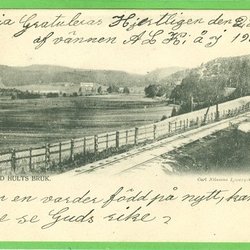 a Gratuleras Hjertligen den 2
af vännen A L K, 2/7 19
D HULTS BRUK.
Carl Nilssons
r en varder född på nytt, kan
e se Guds rike,